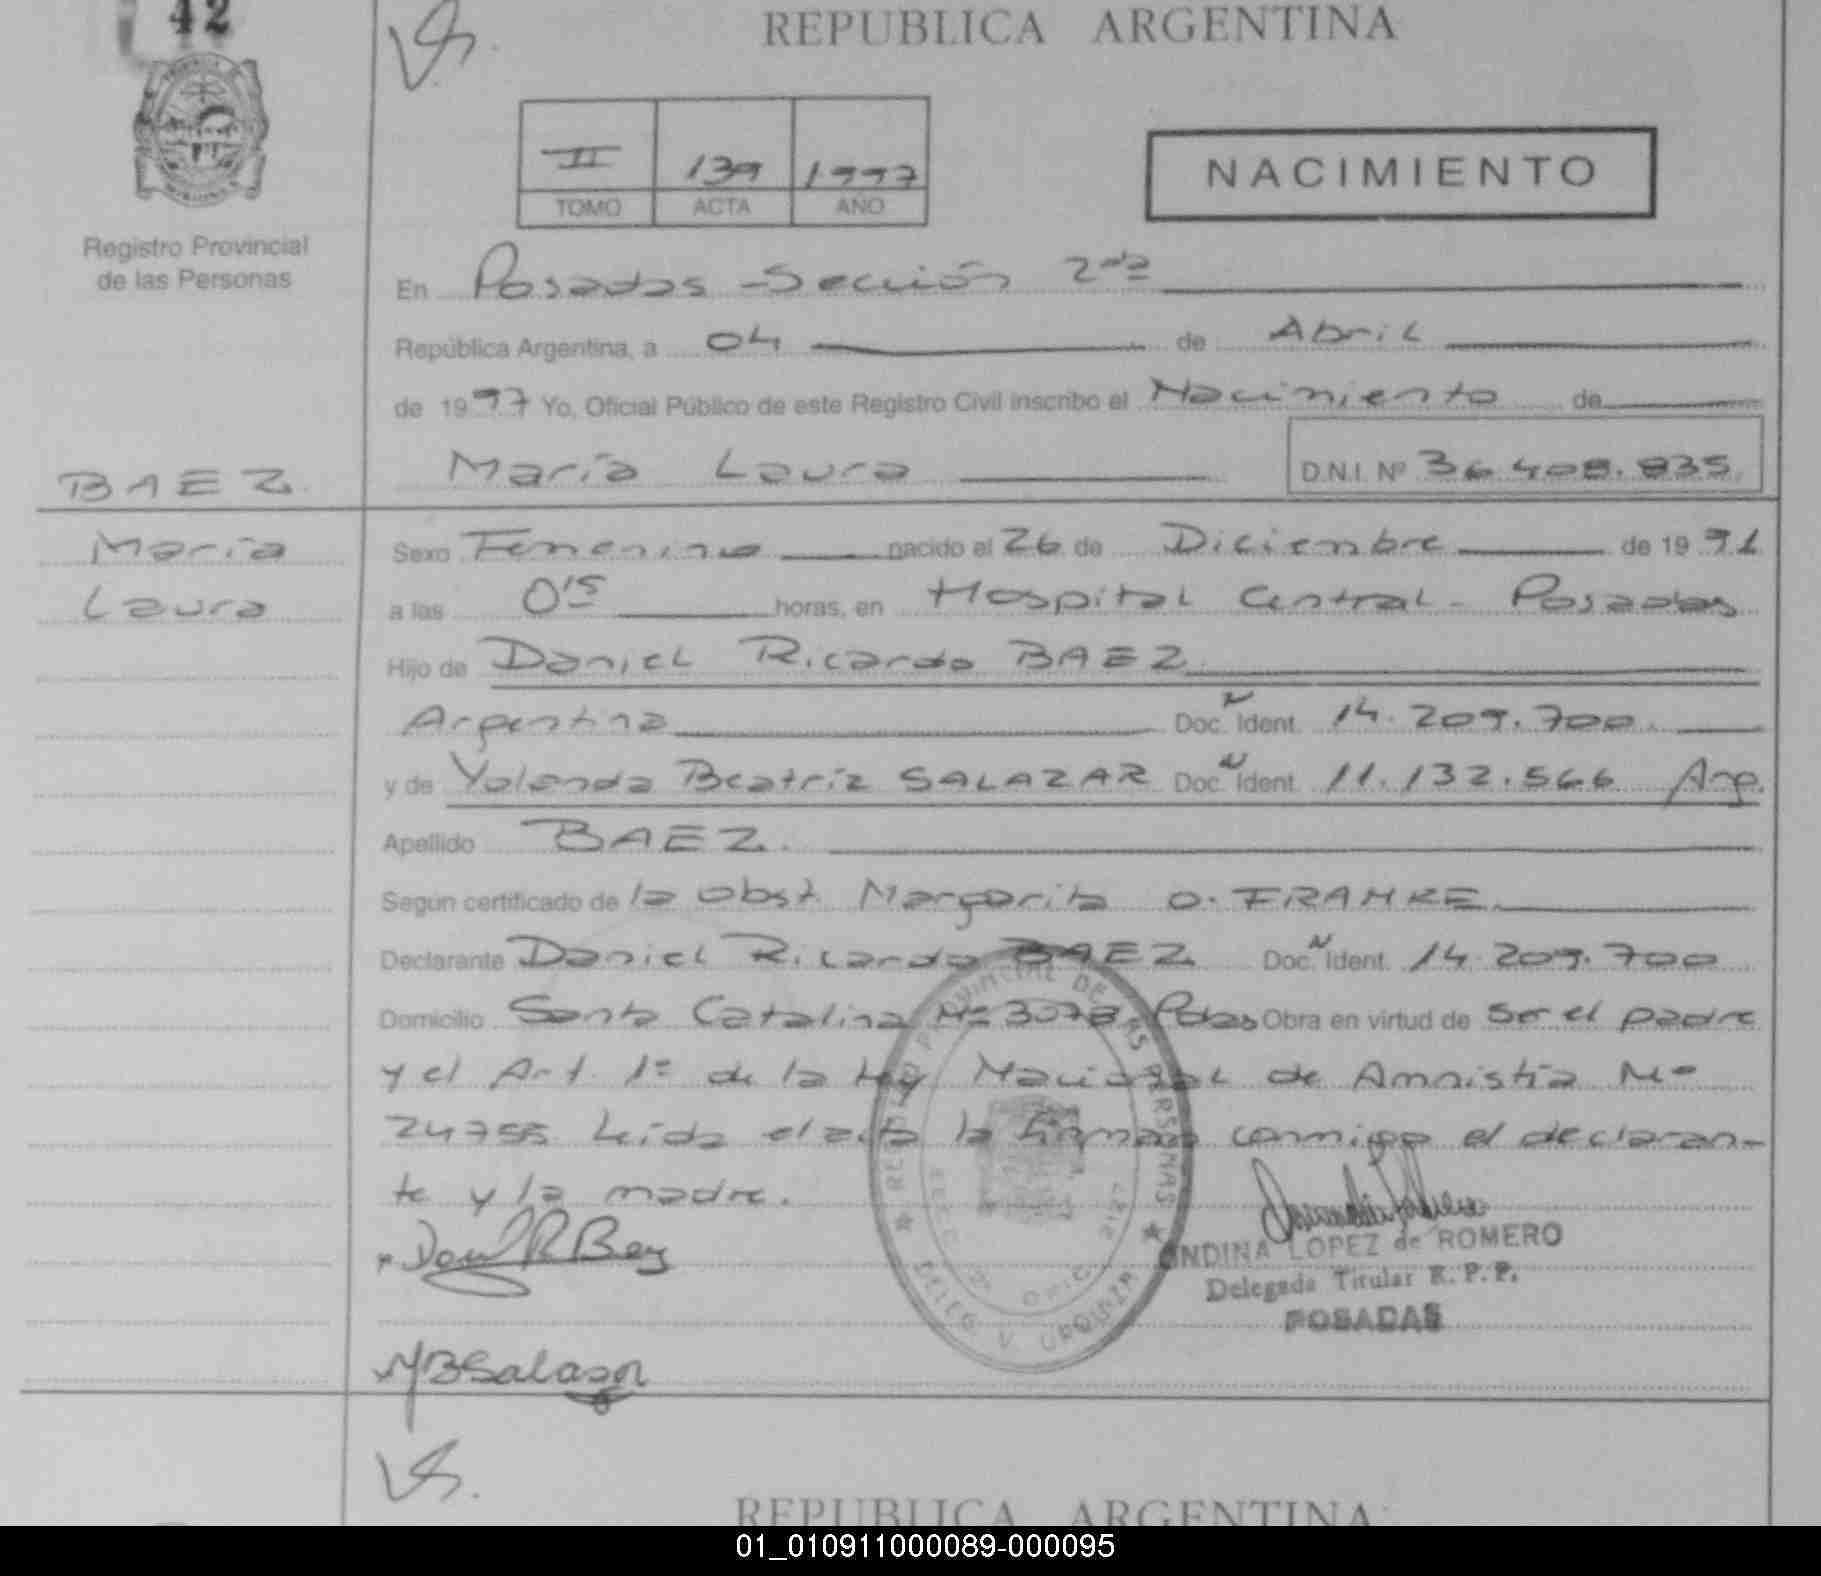 42
REPUBLICA ARGENTINA
II 139 1997
TOMO ACTA AÑO
NACIMIENTO
Registro Provincial
de las Personas
En Posadas - Sección 2da
República Argentina, a 04 de Abril
de 1997 Yo, Oficial Público de este Registro Civil inscribo el Nacimiento de
BAEZ
María Laura D.N.I. Nº 36.408.835
María
Laura
Sexo Femenino nacido el 26 de Diciembre de 1991
a las 0:15 horas, en Hospital Central - Posadas
Hijo de Daniel Ricardo BAEZ
Argentina Doc. Ident. 14.209.700
y de Yolanda Beatríz SALAZAR Doc. Ident. 11.132.566 Arg.
Apellido BAEZ.
Según certificado de la obst. Margarita O. FRAMKE
Declarante Daniel Ricardo BAEZ Doc. Ident. 14.209.700
Domicilio Santa Catalina Nº 3073 Pdas Obra en virtud de ser el padre
y el Art. 1º de la Ley Nacional de Amnistía Nº
24755. Leída el acta la firman conmigo el declaran-
te y la madre.
REGISTRO PROVINCIAL DE LAS PERSONAS
DELEG. V. URQUIZA
ONDINA LOPEZ de ROMERO
Delegada Titular R.P.P.
POSADAS
YBSalazar
REPUBLICA ARGENTINA
01_010911000089-000095